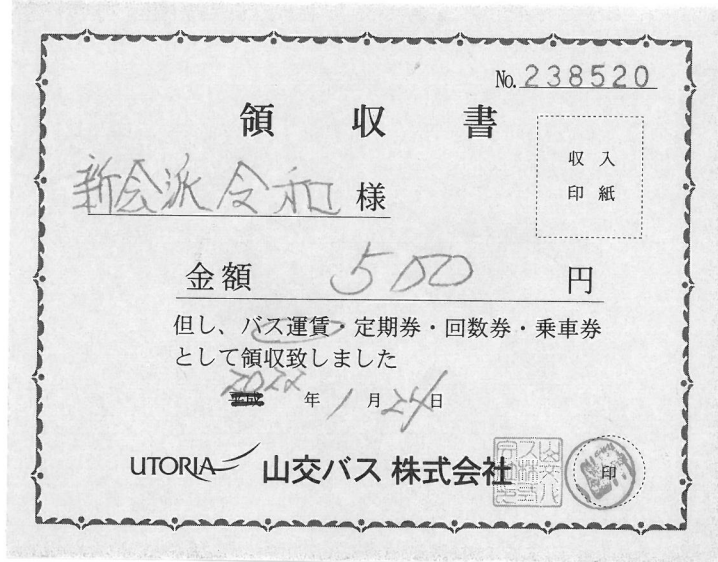 No. 238520
領収書
収入
印紙
新会派令和 様
金額 500 円
但し、バス運賃・定期券・回数券・乗車券
として領収致しました
平成 2022 年 1 月 24 日
UTORIA 山交バス 株式会社
印